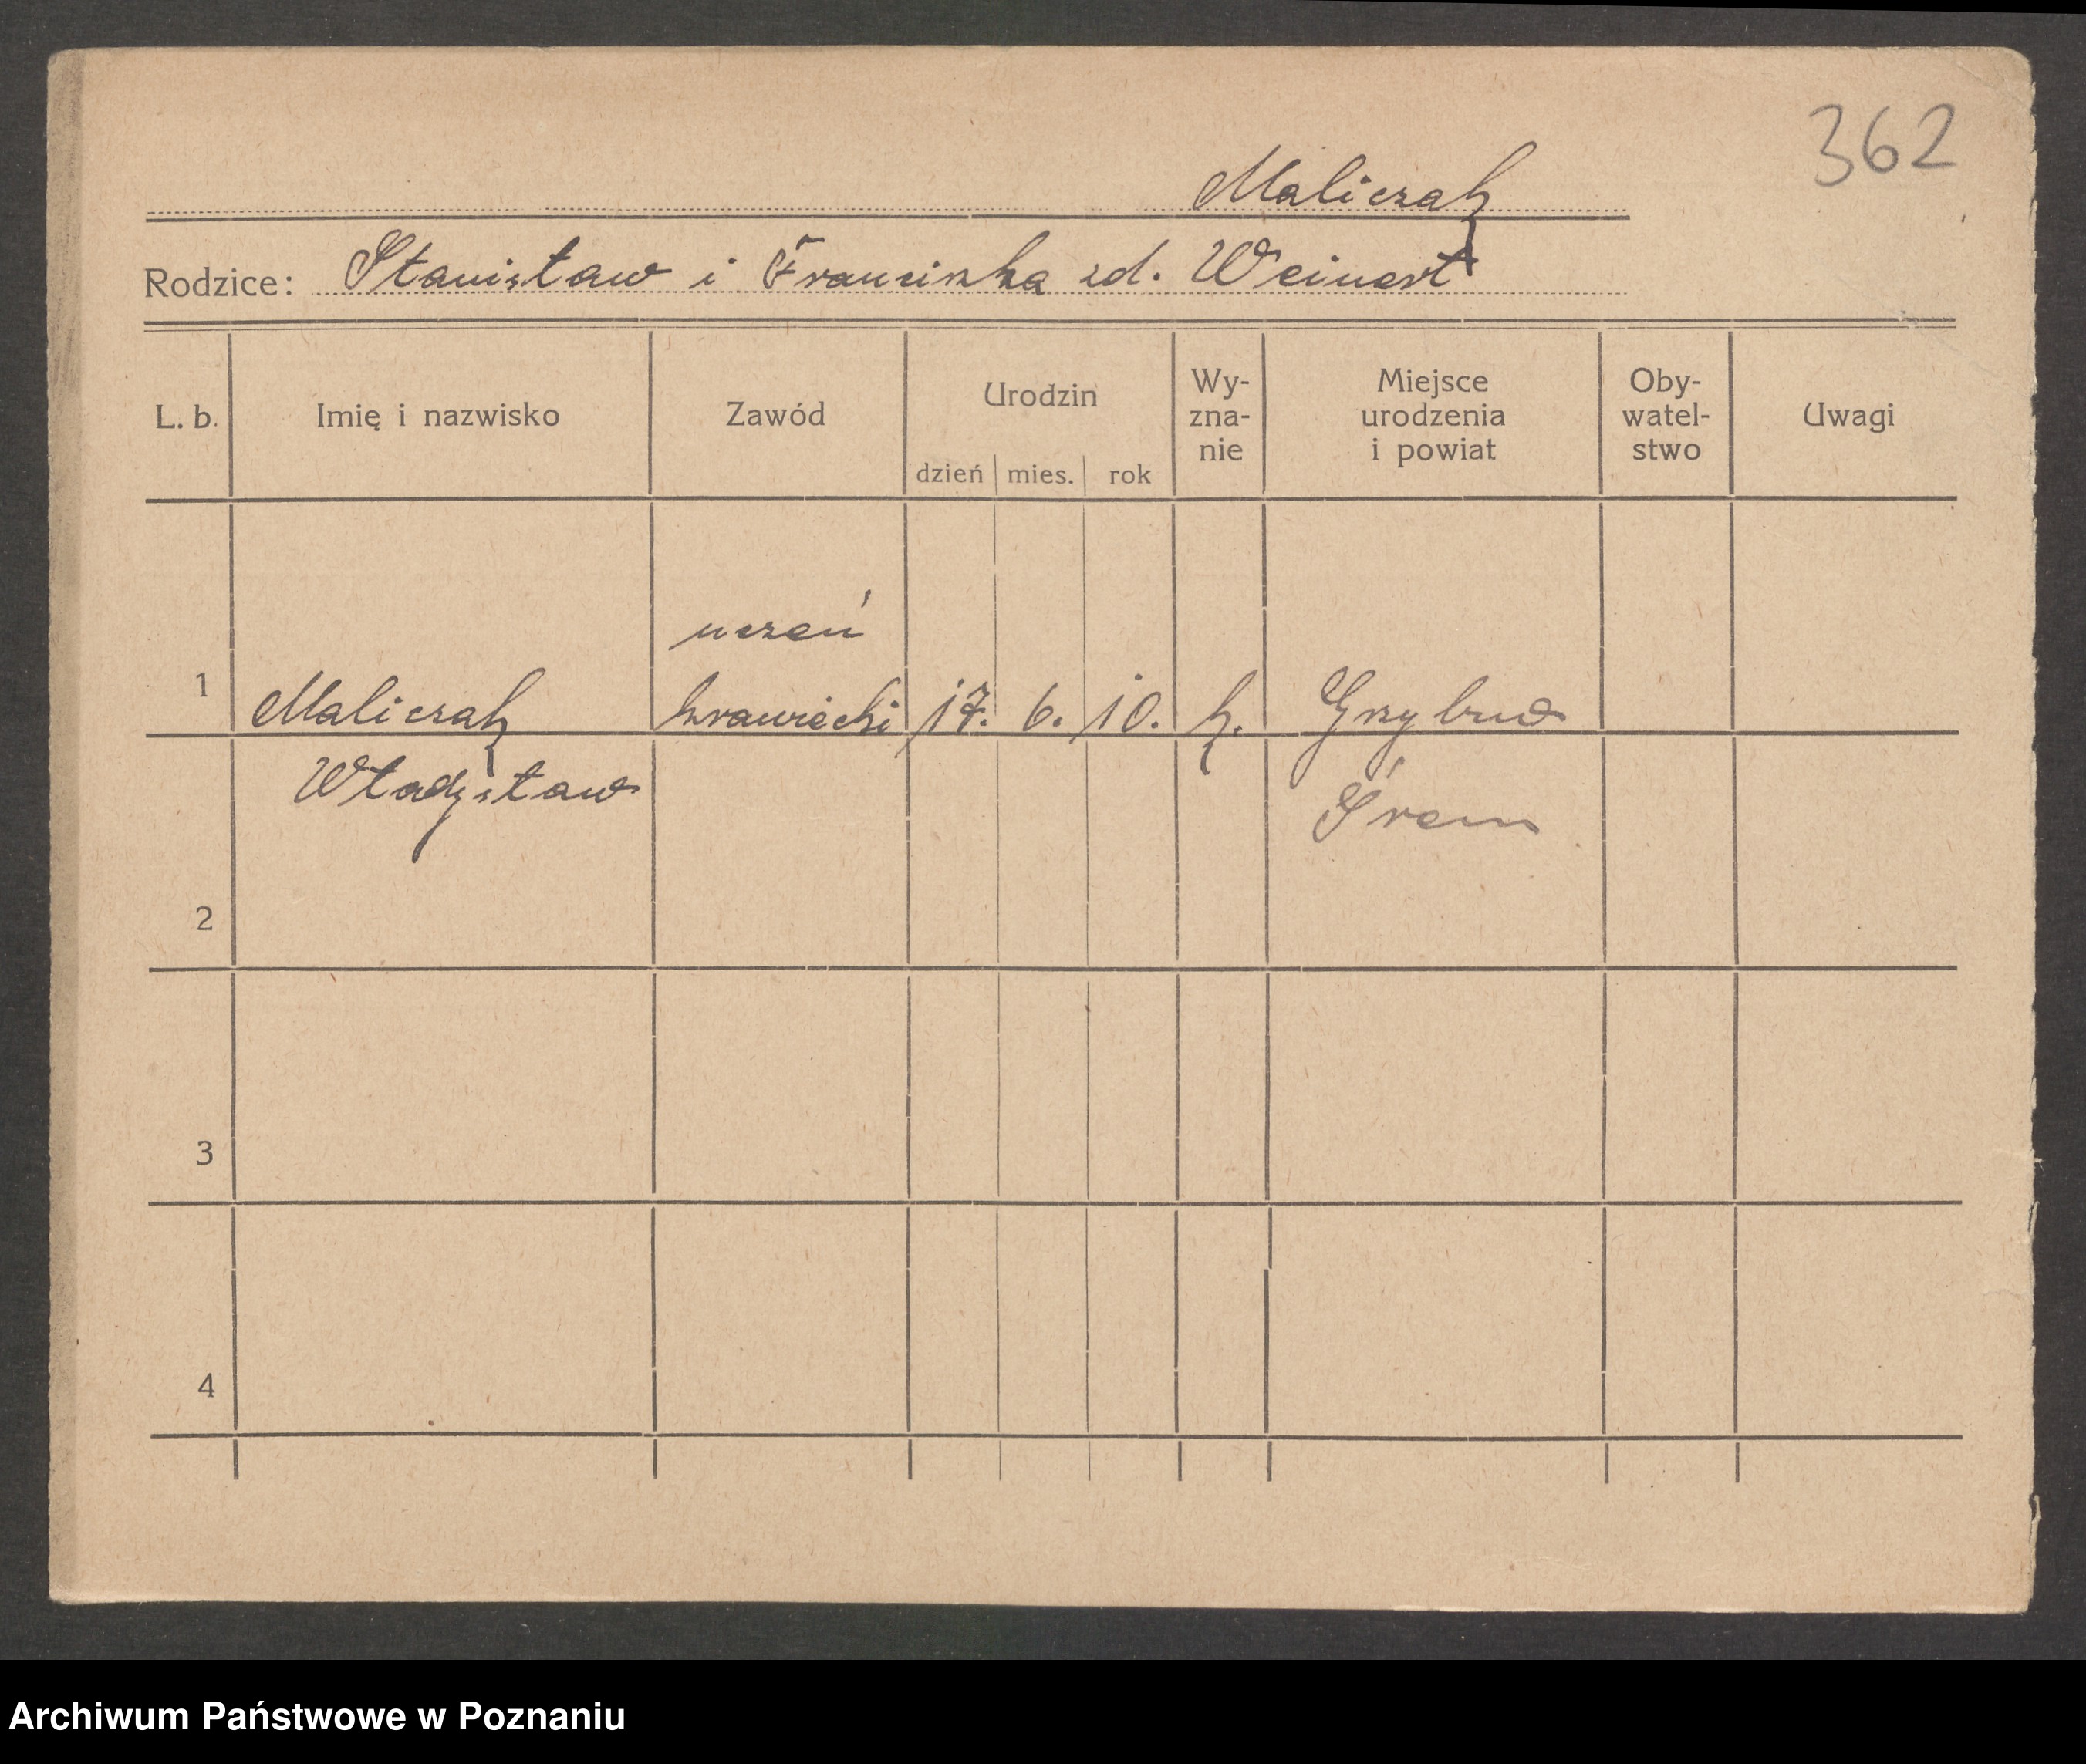 362
Maliczak
Rodzice: Stanisław i Franciszka zd. Weinert
L. b. Imię i nazwisko Zawód Urodzin dzień mies. rok Wy-zna-nie Miejsce urodzenia i powiat Oby-watel-stwo Uwagi
uczeń
1 Maliczak krawiecki 17. 6. 10. k. Grzybno
Władysław Śrem
2
3
4
Archiwum Państwowe w Poznaniu